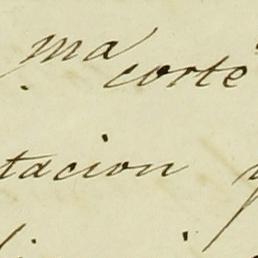 ma corte
tacion